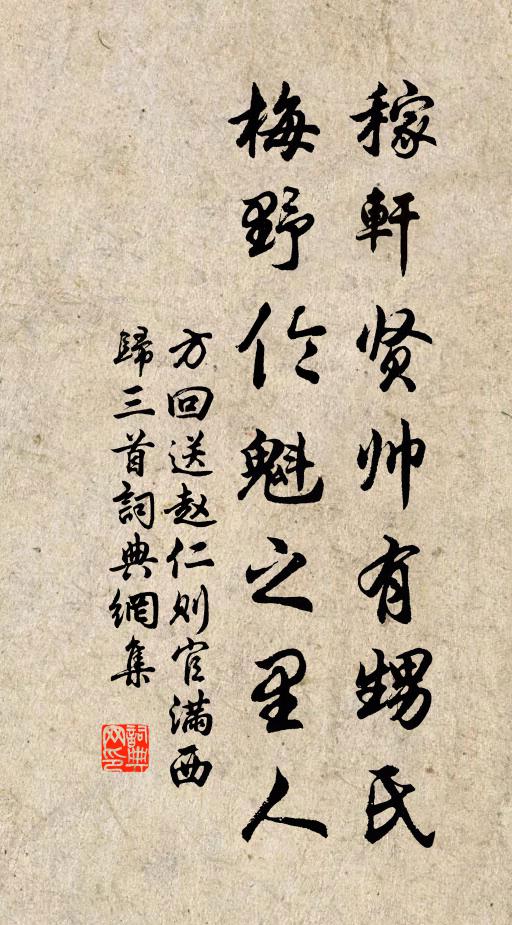 稼軒贤帅有甥氏
梅野伦魁之里人
方回送赵仁则官满西
歸三首詞典網集
詞典
网印